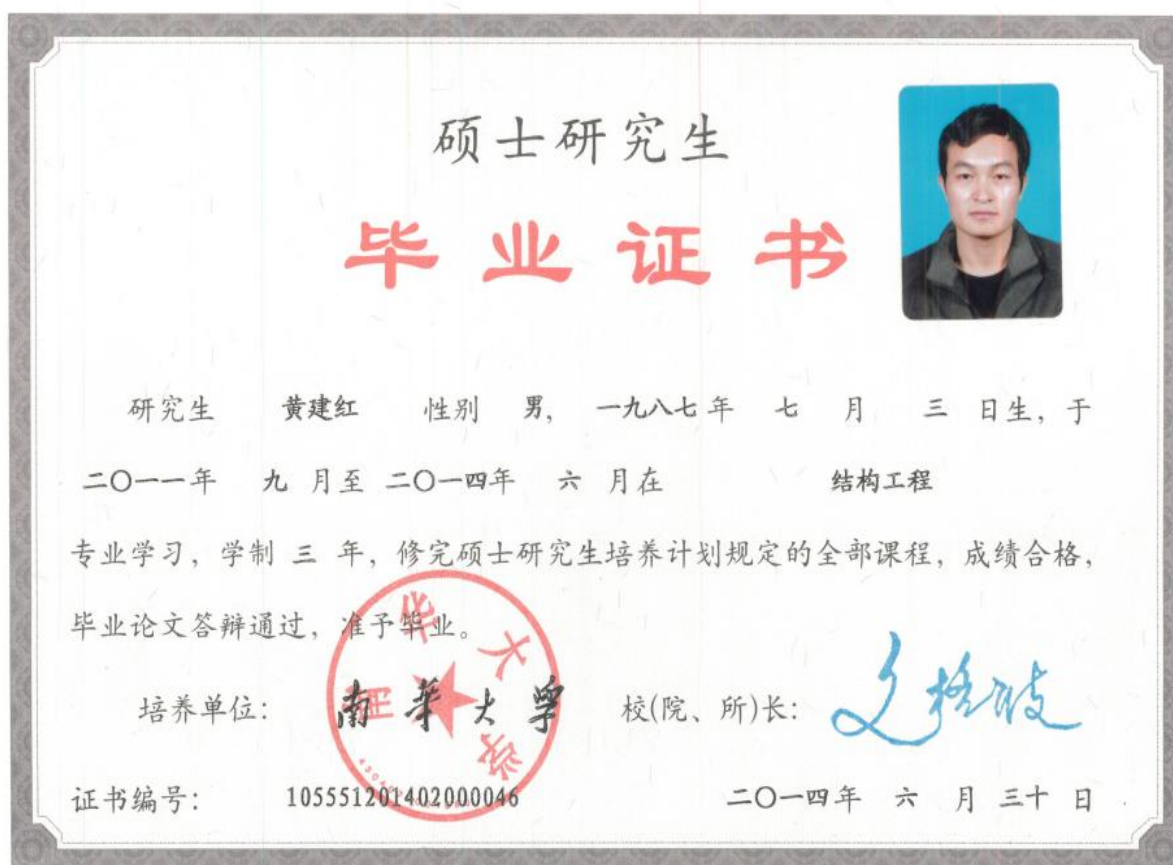 硕士研究生
毕业证书
研究生 黄建红 性别 男， 一九八七 年 七 月 三 日生，于
二〇一一年 九 月至 二〇一四年 六 月在 结构工程
专业学习，学制 三 年，修完硕士研究生培养计划规定的全部课程，成绩合格，
毕业论文答辩通过，准予毕业。
培养单位： 南华大学 校(院、所)长：
南华大学
证书编号： 105551201402000046 二〇一四年 六 月 三十 日